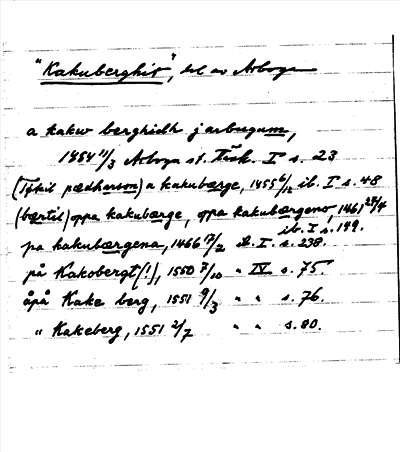 "Kakuberghit", del av Arboga
a kakw berghidh j arbugum,
1454 11/3 Arboga st. Tänk. I s. 23
(Tykil pædharson) a kakubærge, 1455 6/12 ib. I s. 48
(bærtil) oppa kakubærge, oppa kakubærgeno, 1461 27/4
ib. I s. 149.
pa kakubærgena, 1466 17/2 ib. I. s. 238.
på Kakobergt (!), 1550 7/10 " IV s. 75.
åpå Kake berg, 1551 9/3 " " s. 76.
" Kakeberg, 1551 2/7 " " s. 80.